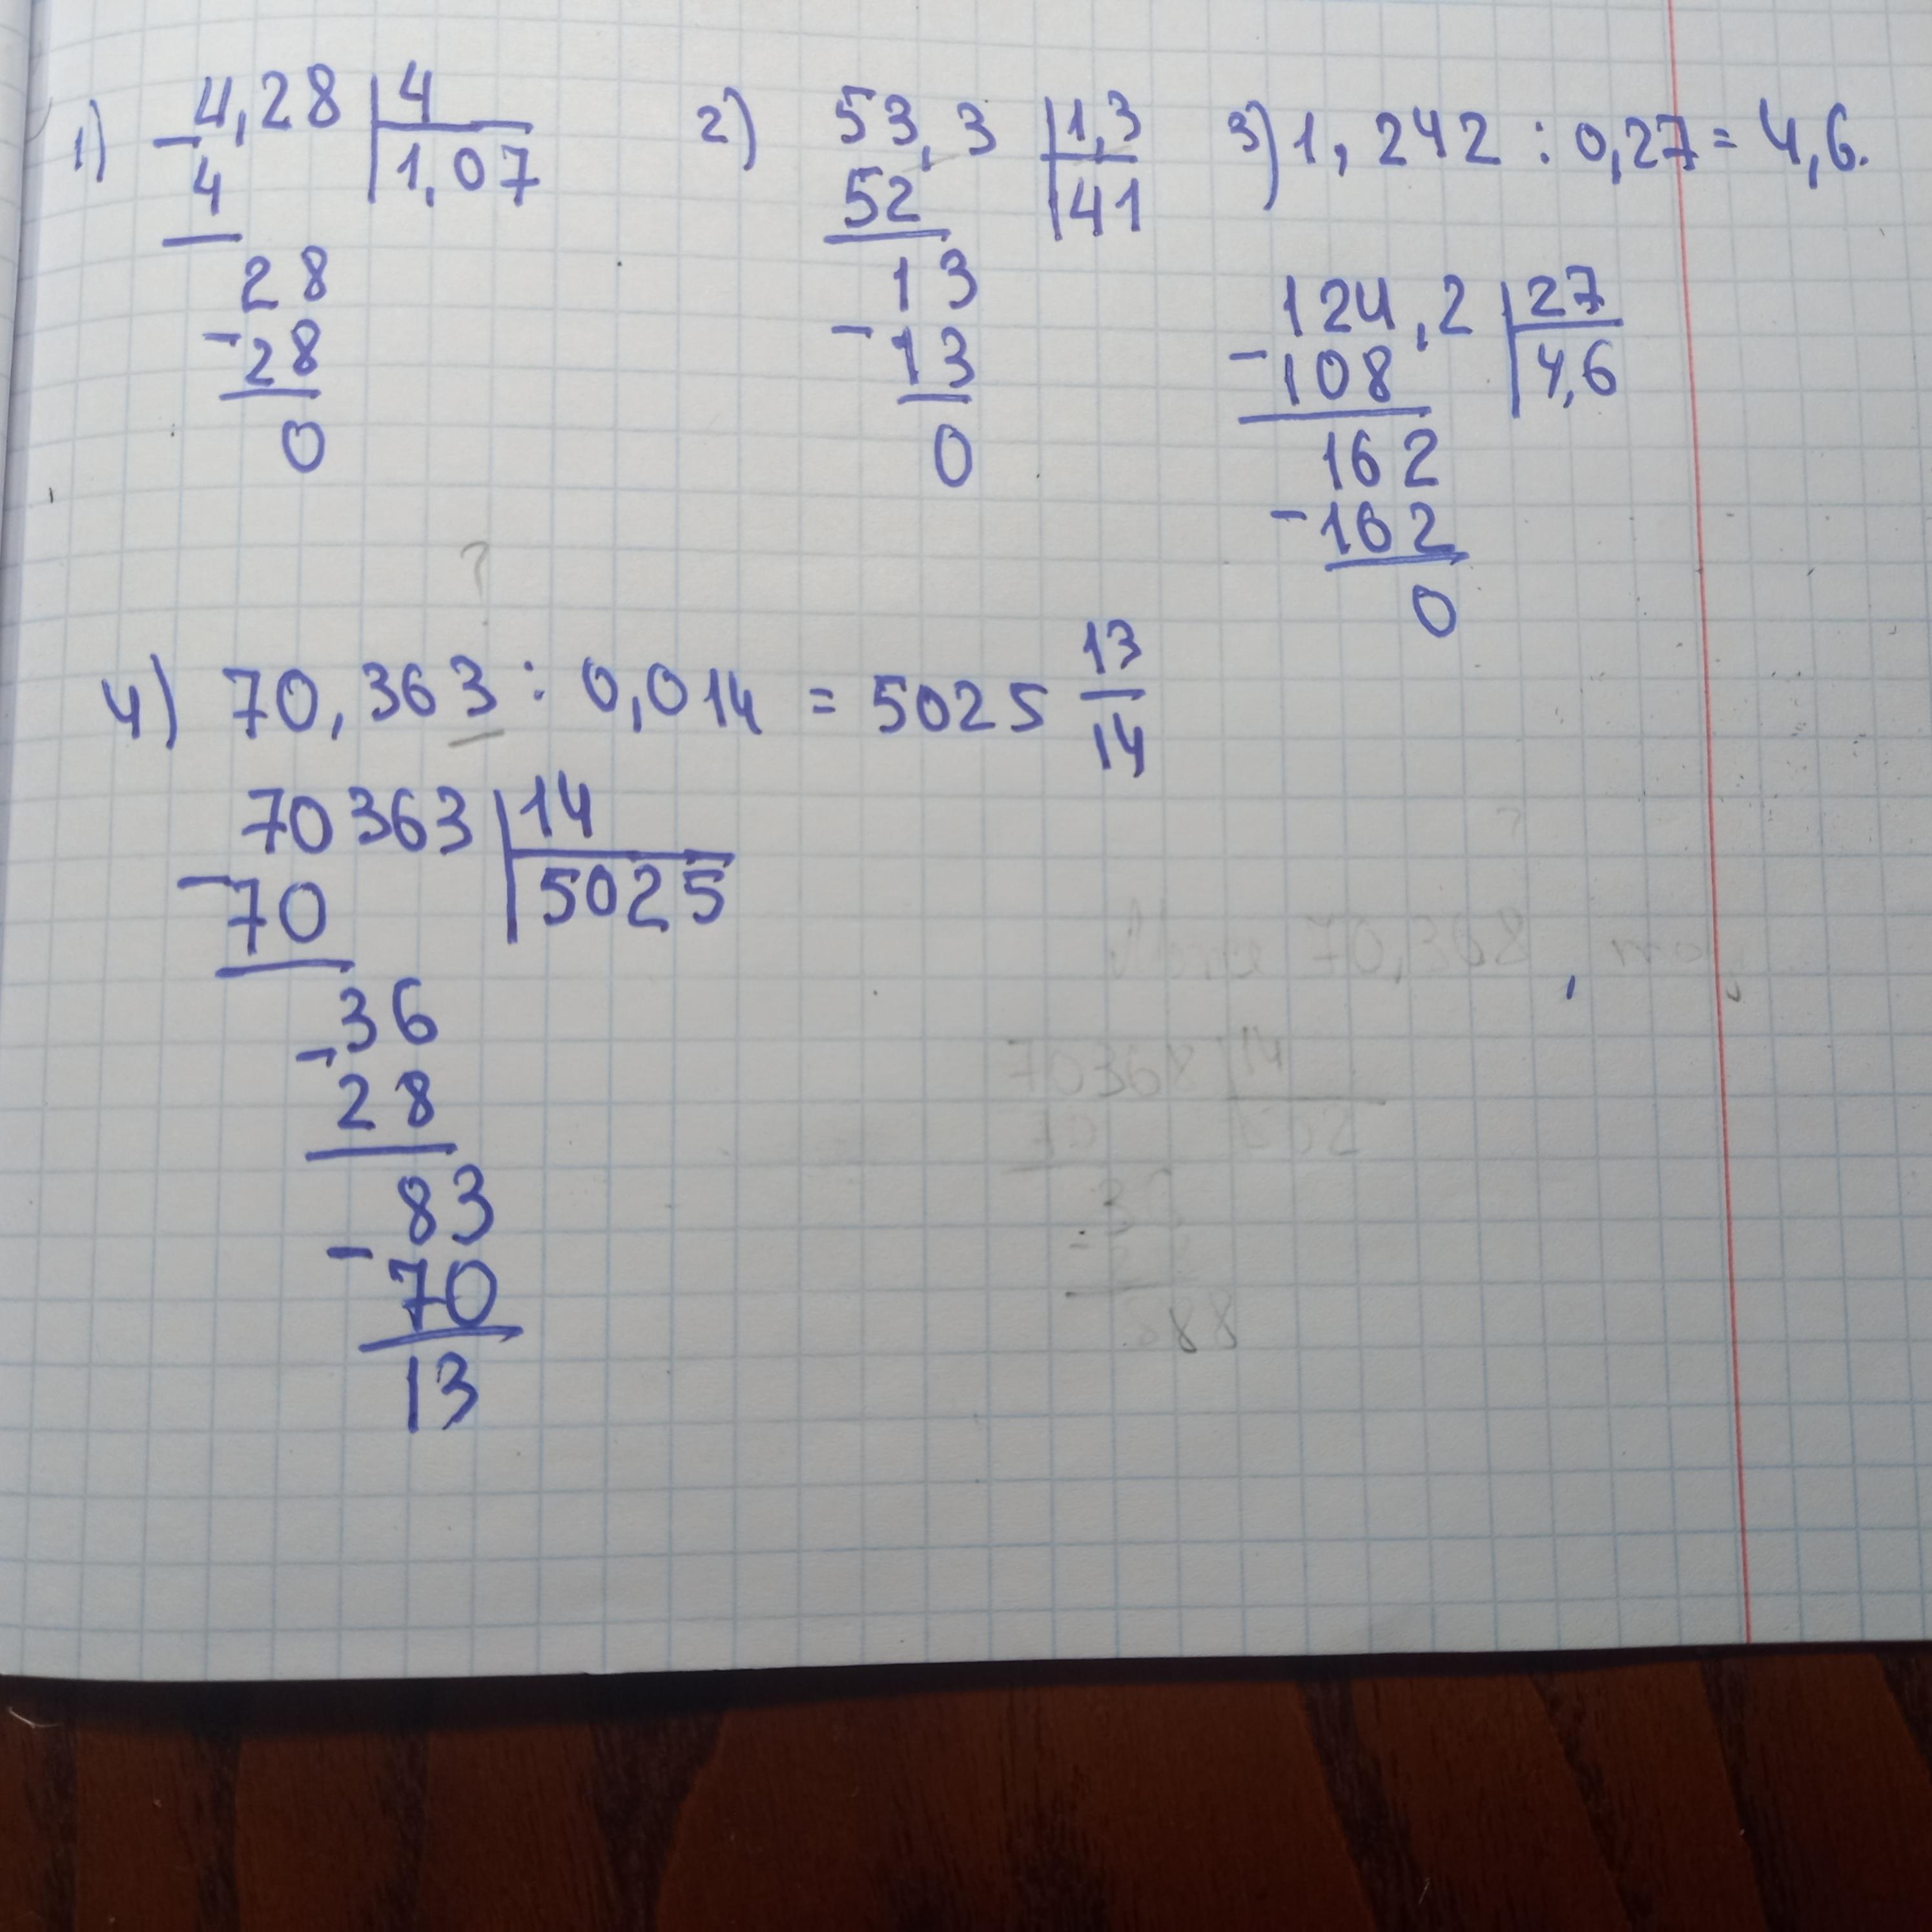 1) 4,28 | 4
- 4 | 1,07
28
- 28
0
2) 53,3 | 1,3
52 | 41
13
- 13
0
3) 1,242 : 0,27 = 4,6.
124,2 | 27
- 108 | 4,6
162
- 162
0
?
4) 70,363 : 0,014 = 5025 13/14
70363 | 14
- 70 | 5025
- 36
28
83
- 70
13
70,368
70368 | 14
88